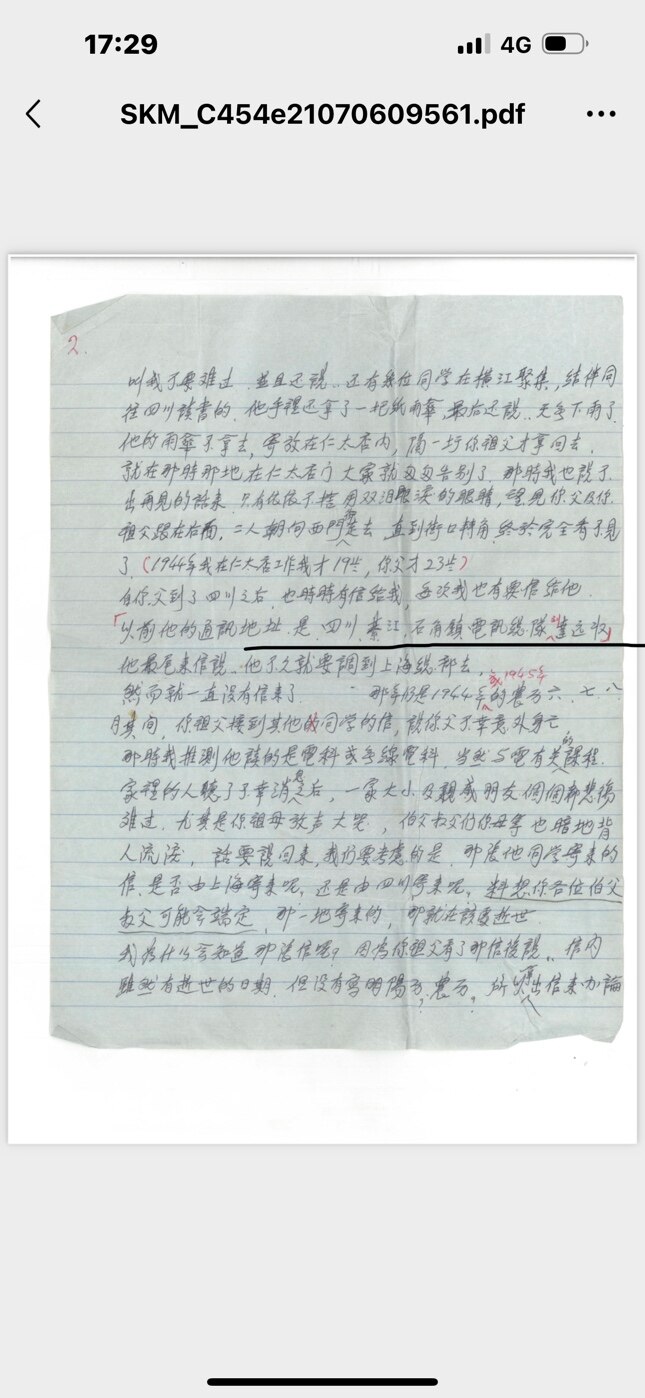 17:29
4G
SKM_C454e21070609561.pdf
2.
叫我不要难过.並且还說..还有幾位同学在横江聚集,结伴同
往四川讀書的.他手裡还拿了一把紙雨傘,最后还說..天冬下雨了
他的雨傘不拿去,寄放在仁太店内,隔一圩你祖父才拿回去.
就在那時那地在仁太店门大家就匆匆告别了.那時我也說了
出再見的話来.只有依依不捨用双泪眼淚的眼睛,望見你父及你
祖父跟在右面,二人朝向西門走去.直到街口轉角.終於完全看不見
了.(1944年我在仁太店工作我才19岁,你父才23岁)
自你父到了四川之后.也時時有信给我,每次我也有要信给他.
「以前他的通訊地址.是.四川.綦江.石角鎮電訊総隊 達远收」
他最尾来信說..他不久就要調到上海総部去,
然而就一直没有信来了. 那年仍是1944年或1945年的農历六.七.八
月其间,你祖父接到其他的同学的信,說你父不幸意外身亡
那時我推測他讀的是電科或無線電科.当然与電有关的課程.
家裡的人聽了不幸消息之后,一家大小及親戚朋友個個都悲傷
难过.尤其是你祖母放声大哭,伯父叔父们你母等也暗地背
人流淚,話要說回来,我们要考慮的是.那漈他同学寄来的
信.是否由上海寄来呢,还是由四川寄来呢,料想你各位伯父
叔父可能会端定.那一地寄来的,那就在該處逝世.
我為什么会知道那漈信呢?因為你祖父看了那信後說..信内
雖然有逝世的日期.但没有寫明陽历,農历.所以拿出信来办論